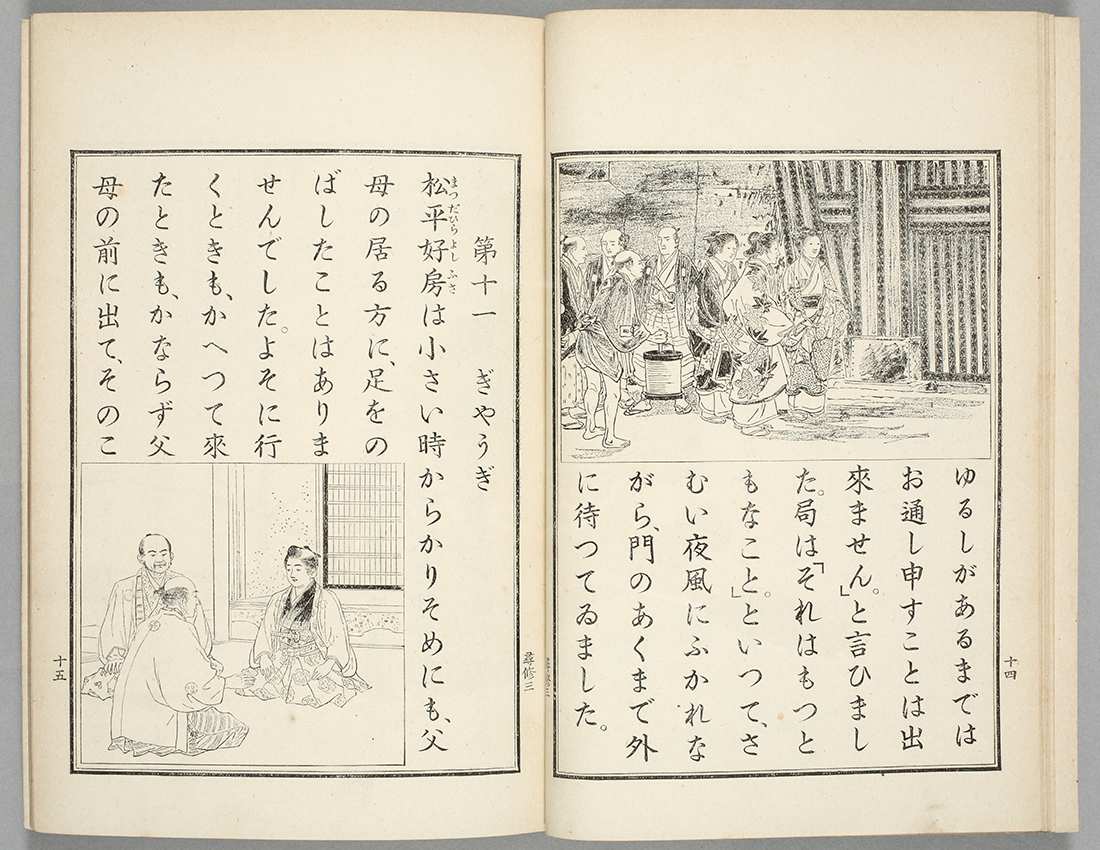 ゆるしがあるまでは
お通し申すことは出
來ません。」と言ひまし
た。局は「それはもつと
もなこと。」といつて、さ
むい夜風にふかれな
がら、門のあくまで外
に待つてゐました。
十四
尋修三
第十一 ぎやうぎ
松平好房は小さい時からかりそめにも、父
まつ だひら よし ふさ
母の居る方に、足をの
ばしたことはありま
せんでした。よそに行
くときも、かへつて來
たときも、かならず父
母の前に出て、そのこ
尋修三
十五